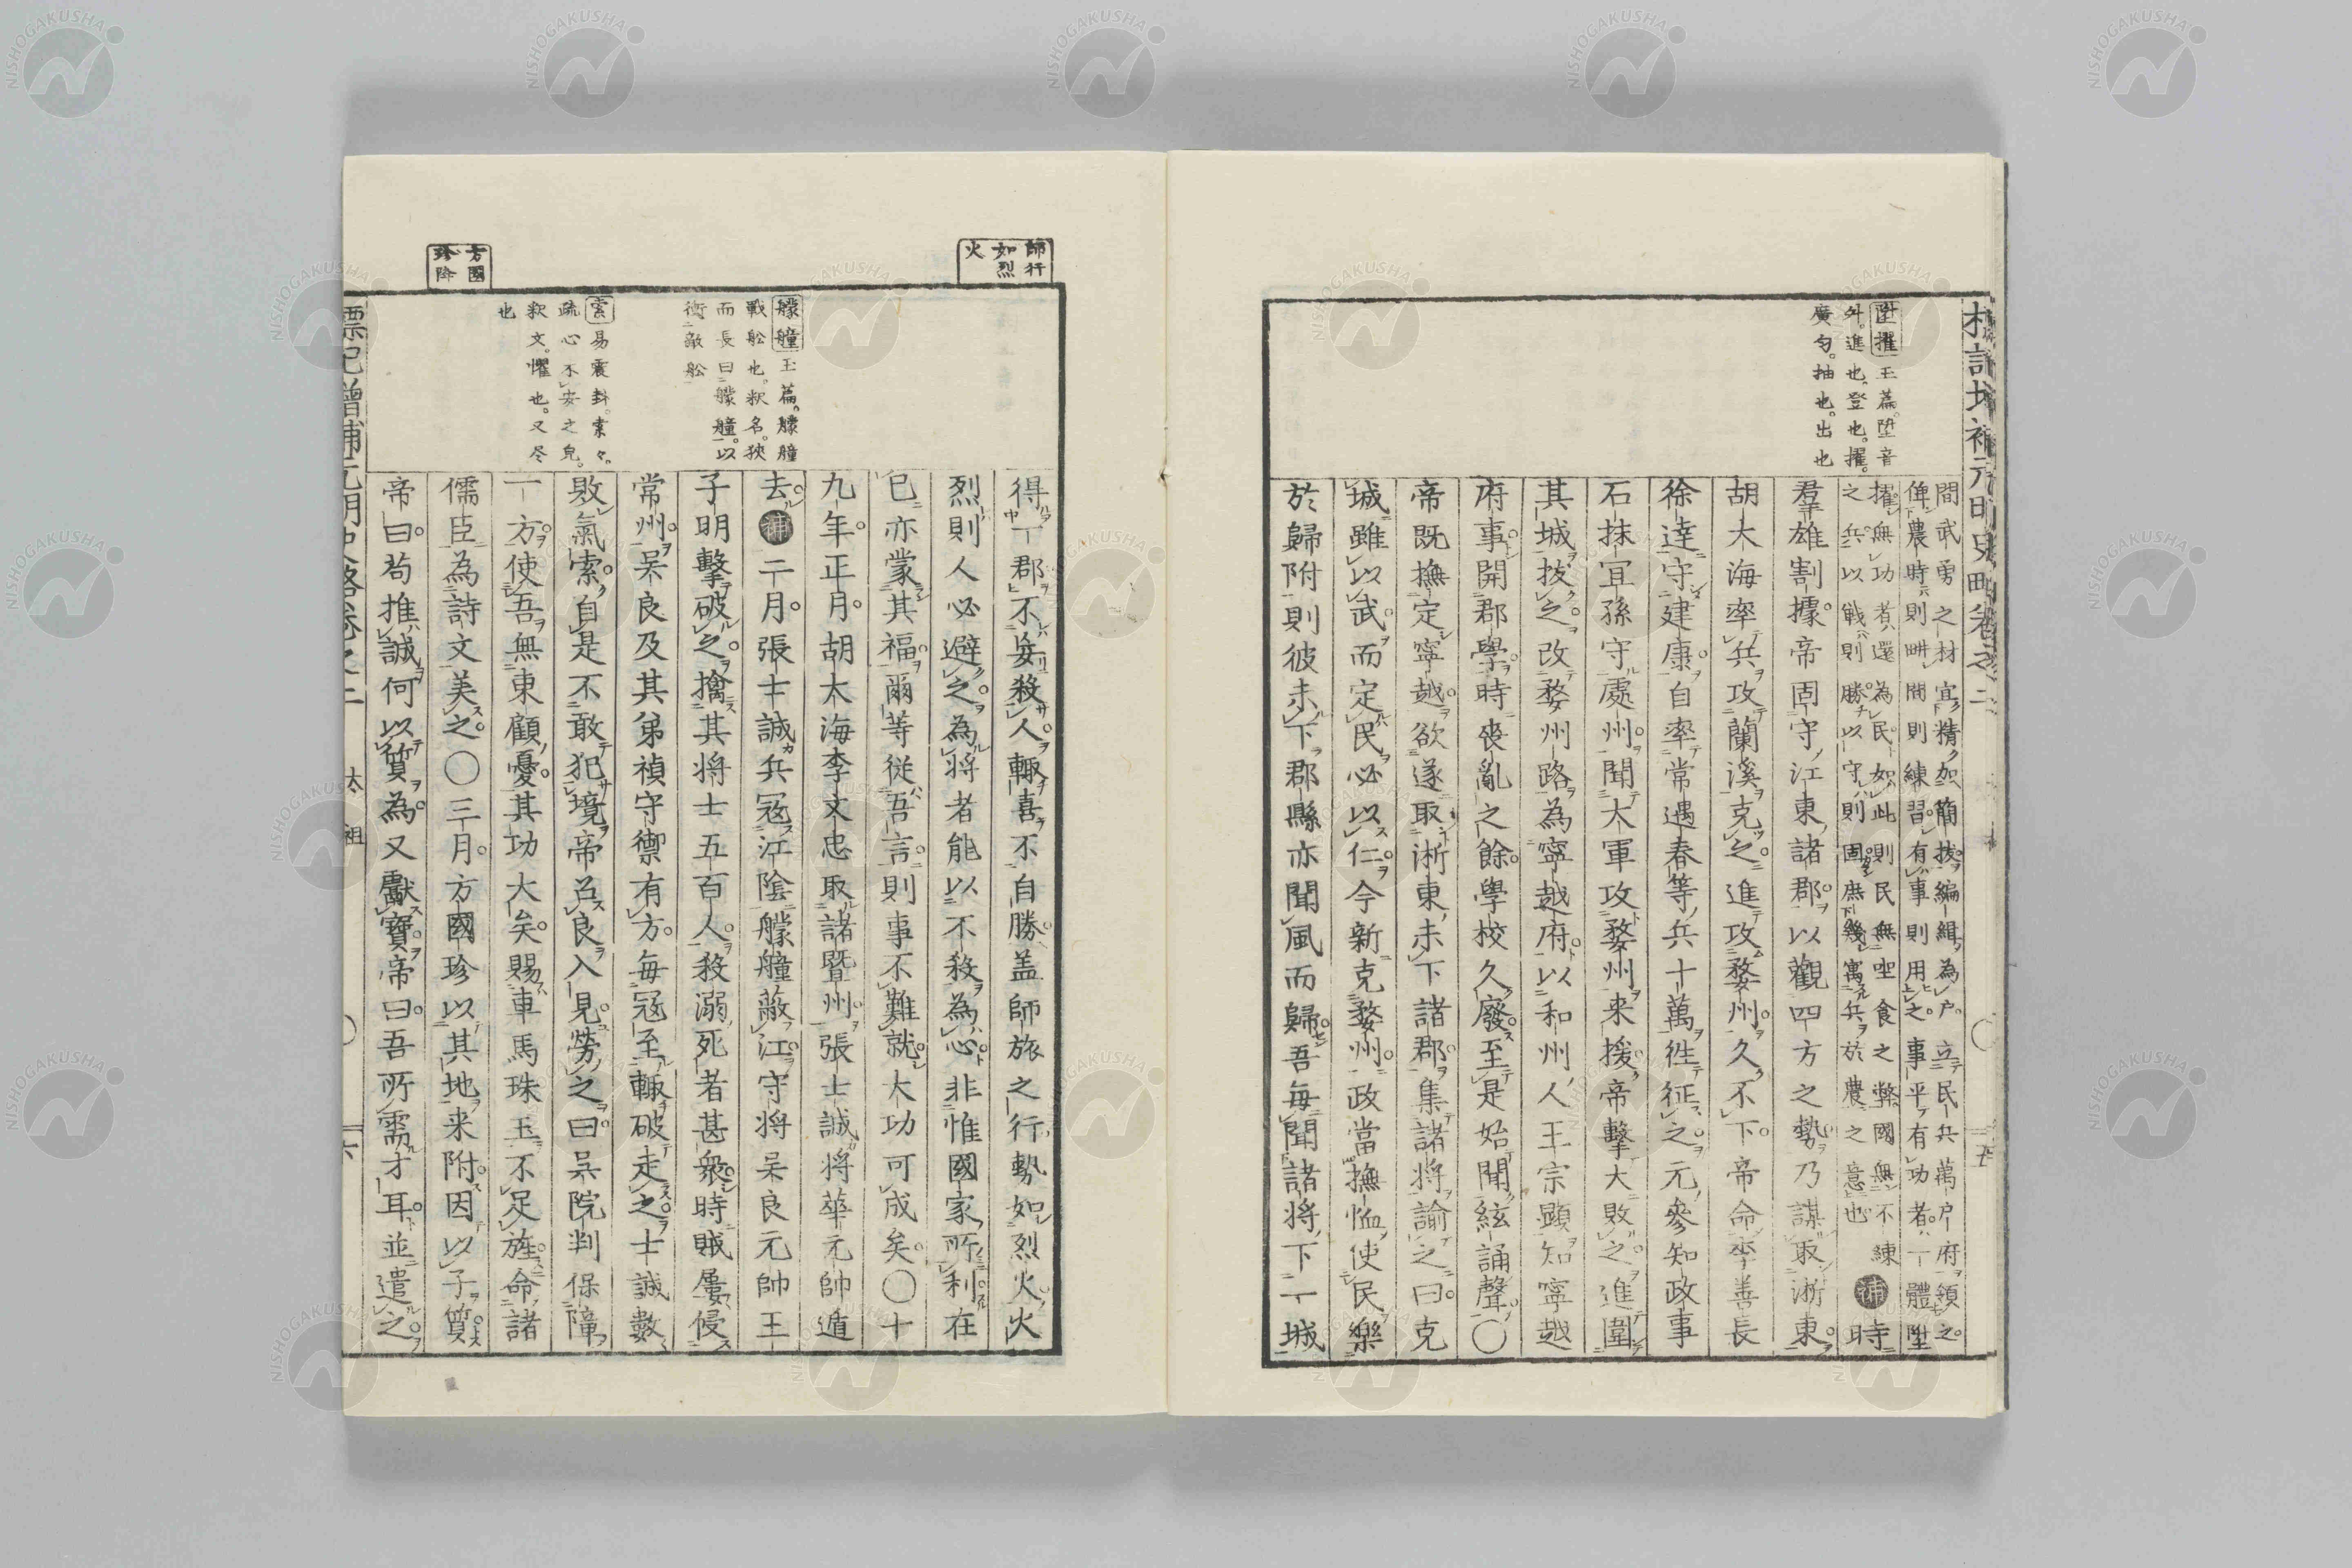 陞擢玉篇。陞音
舛。進也。登也。擢。
廣匀。抽也。出也
間武勇之材宜精加簡拔編緝為戶立民兵萬戶府領之
俾農時則畊間則練習有事則用之事平有功者一體陞
擢無功者還為民如此則民無坐食之弊國無不練
之兵以戰則勝以守則固庶幾寓兵於農之意也
補時
羣雄割據帝固守江東諸郡以觀四方之勢乃謀取浙東
胡大海率兵攻蘭溪克之進攻婺州久不下帝命李善長
徐達守建康自率常遇春等兵十萬往征之元參知政事
石抹宜孫守處州聞大軍攻婺州来援帝擊大敗之進圍
其城拔之改婺州路為寧越府以和州人王宗顯知寧越
府事開郡學時喪亂之餘學校久廢至是始聞絃誦聲〇
帝既撫定寧越欲遂取浙東未下諸郡集諸將諭之曰克
城雖以武而定民必以仁今新克婺州政當撫恤使民樂
於歸附則彼未下郡縣亦聞風而歸吾每聞諸将下一城
師行
如烈
火
方國
珍降
艨艟玉篇。艨艟
戰舩也。釈名。狹
而長曰艨艟。以
衝敵舩
索易震卦。索々。
疏心不安之皃。
釈文。懼也。又尽
也
得一郡不妄殺人輙喜不自勝盖師旅之行勢如烈火火
烈則人必避之為將者能以不殺為心非惟國家所利在
已亦蒙其福爾等從吾言則事不難就大功可成矣〇十
九年正月胡大海李文忠取諸暨州張士誠將華元帥遁
去補二月張士誠兵冦江陰艨艟蔽江守将吴良元帥王
子明擊破之擒其将士五百人殺溺死者甚衆時賊屢侵
常州吴良及其弟禎守禦有方每冦至輙破走之士誠數
敗氣索自是不敢犯境帝召良入見勞之曰吴院判保障
一方使吾無東顧憂其功大矣賜車馬珠玉不足旌命諸
儒臣為詩文美之〇三月方國珍以其地来附因以子質
帝曰苟推誠何以質為又獻寶帝曰吾所需才耳並遣之
太祖